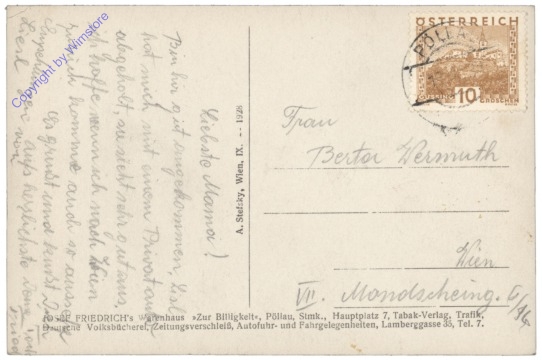 ÖSTERREICH
10
GROSCHEN
GÜSSING
PÖLLAU
Liebste Mama!
Bin hier gut angekommen, Lisl
hat mich mit einem Privatauto
abgeholt, sie sieht sehr gut aus,
ich hoffe wenn ich nach Wien
zurück komme auch so auss
Es grüsst und küsst Dich
aufs herzlichste
A. Stefsky, Wien, IX. -- 1928
Frau
Berta Wermuth
Wien
VII. Mondscheing.
JOSEF FRIEDRICH's Warenhaus »Zur Billigkeit«, Pöllau, Stmk., Hauptplatz 7, Tabak-Verlag, Trafik,
Deutsche Volksbücherei, Zeitungsverschleiß, Autofuhr- und Fahrgelegenheiten, Lamberggasse 35, Tel. 7.
Copyright by Winstore